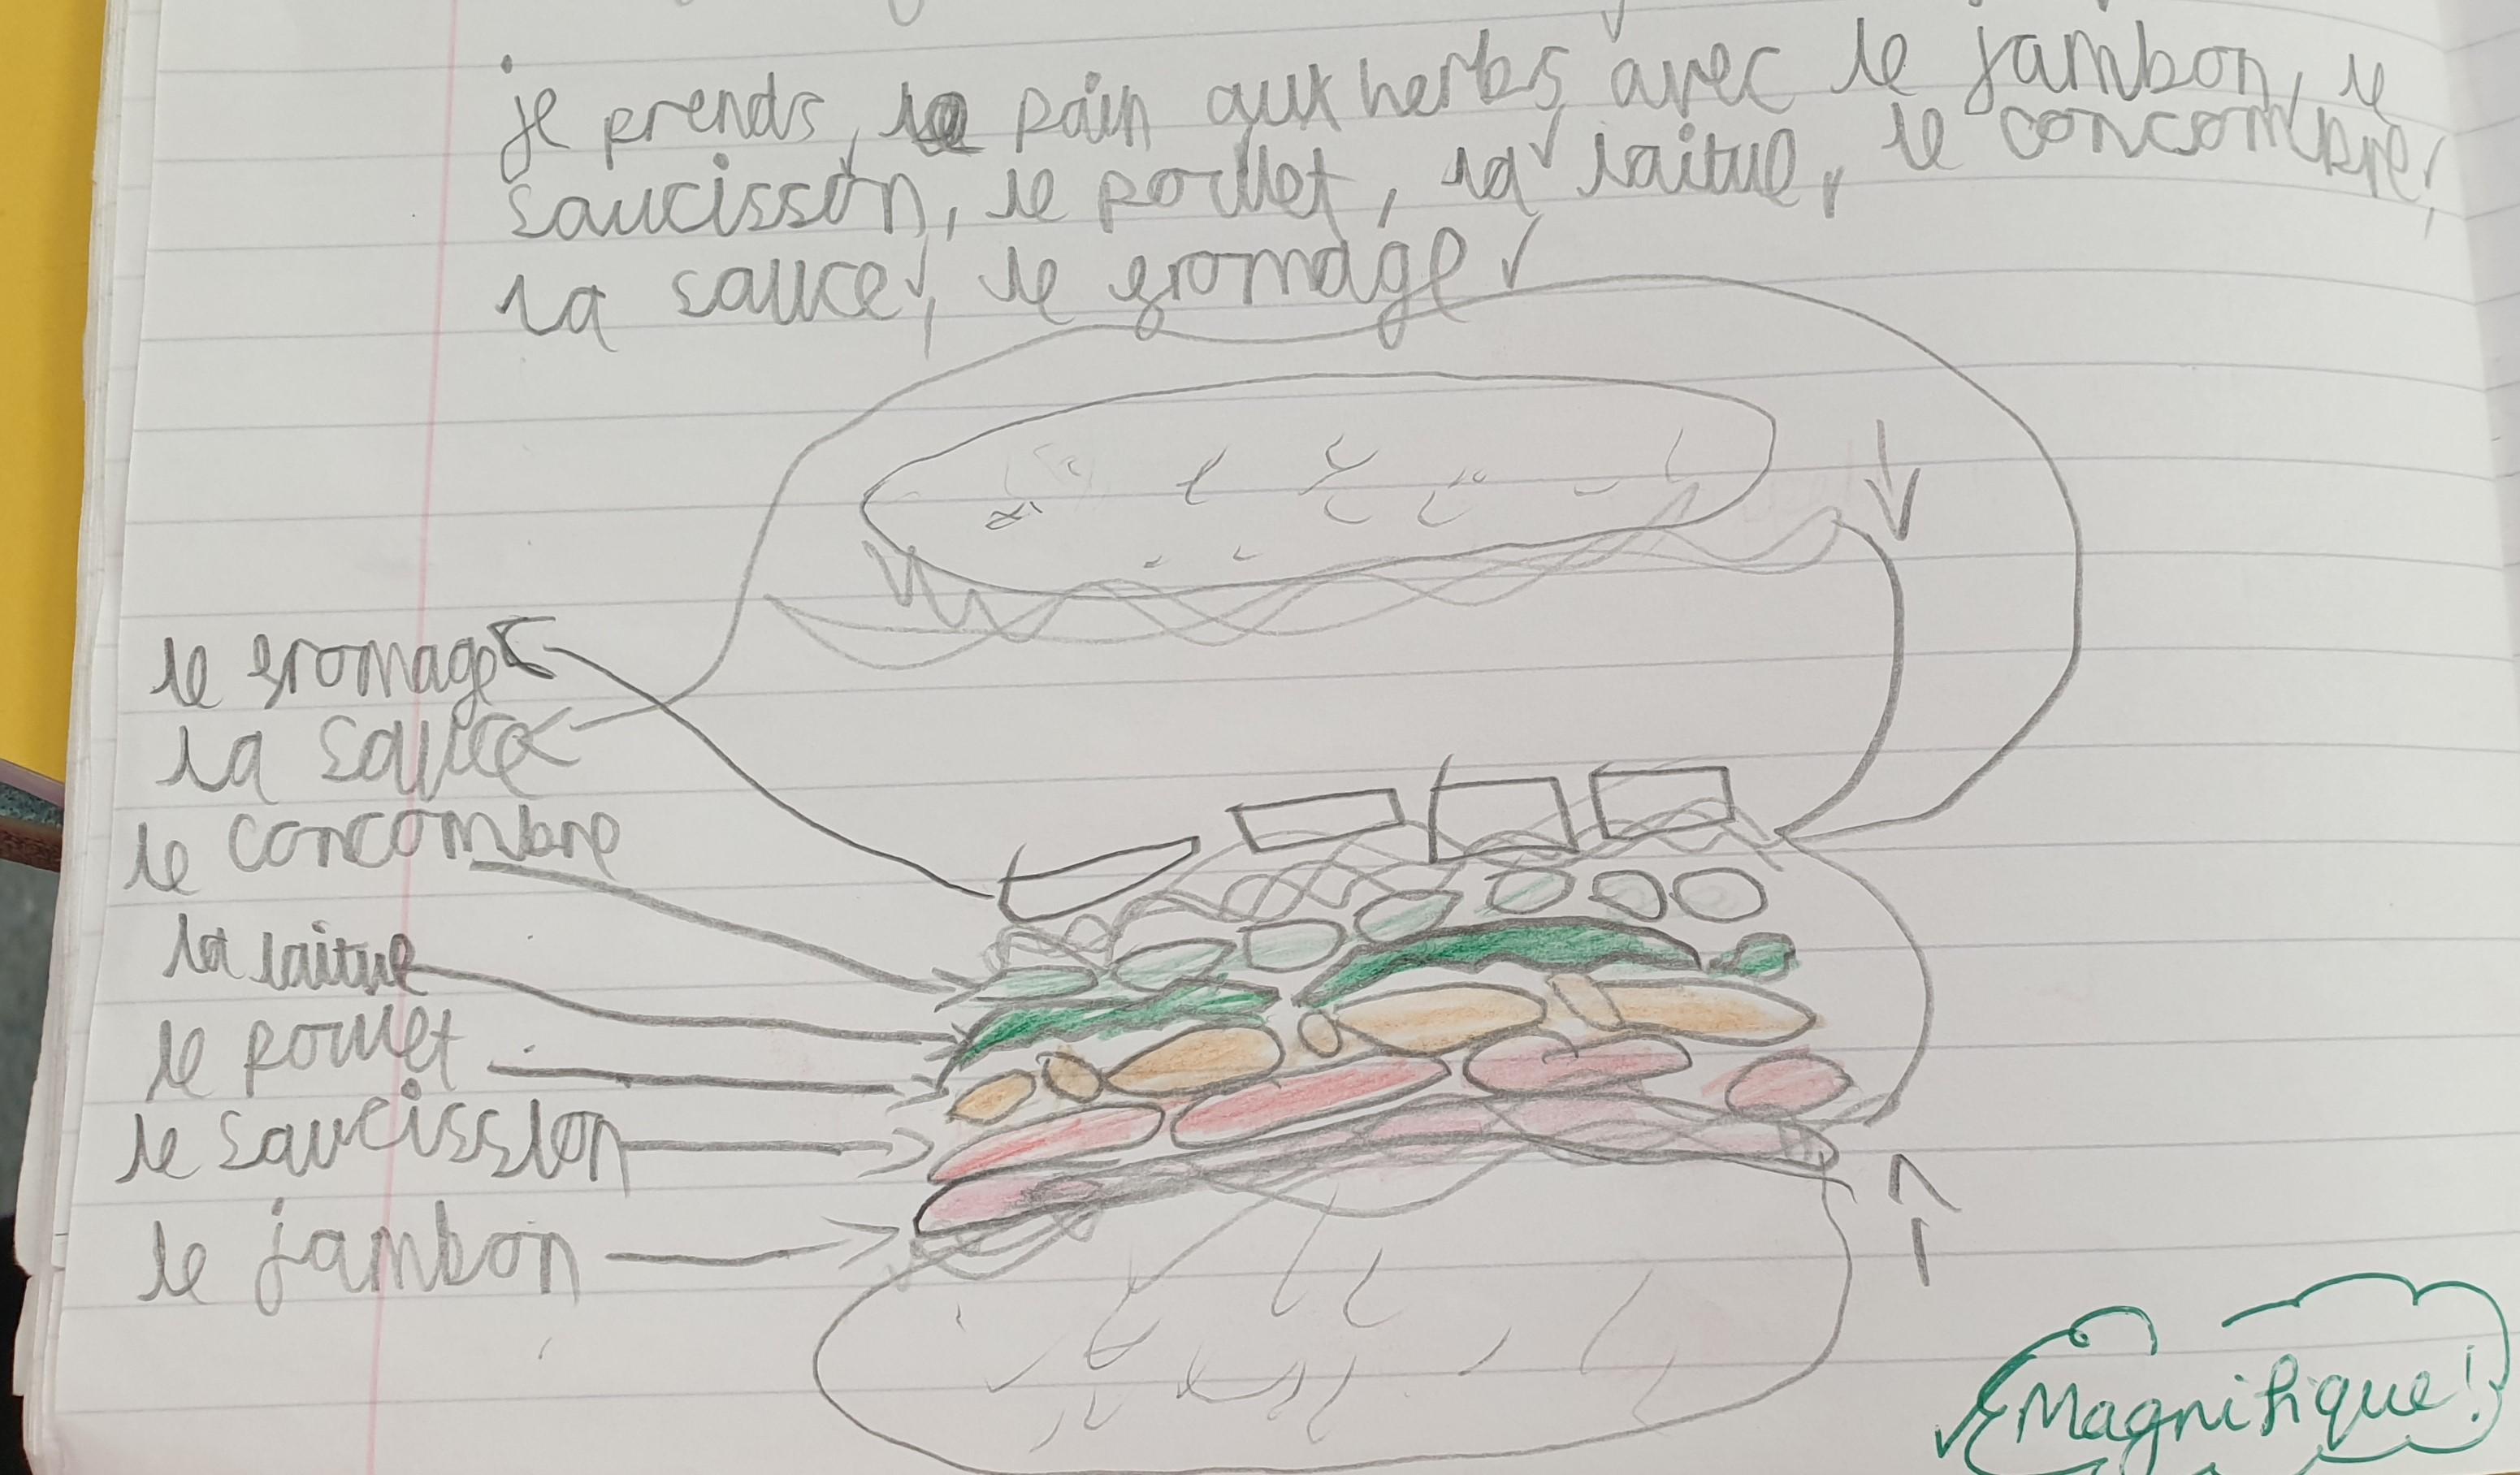 je prends, le pain aux herbs avec le jambon, le
saucisson, le poulet, la laitue, le concombre,
la sauce, le fromage
le fromage
la sauce
le concombre
la laitue
le poulet
le saucission
le jambon
Magnifique!